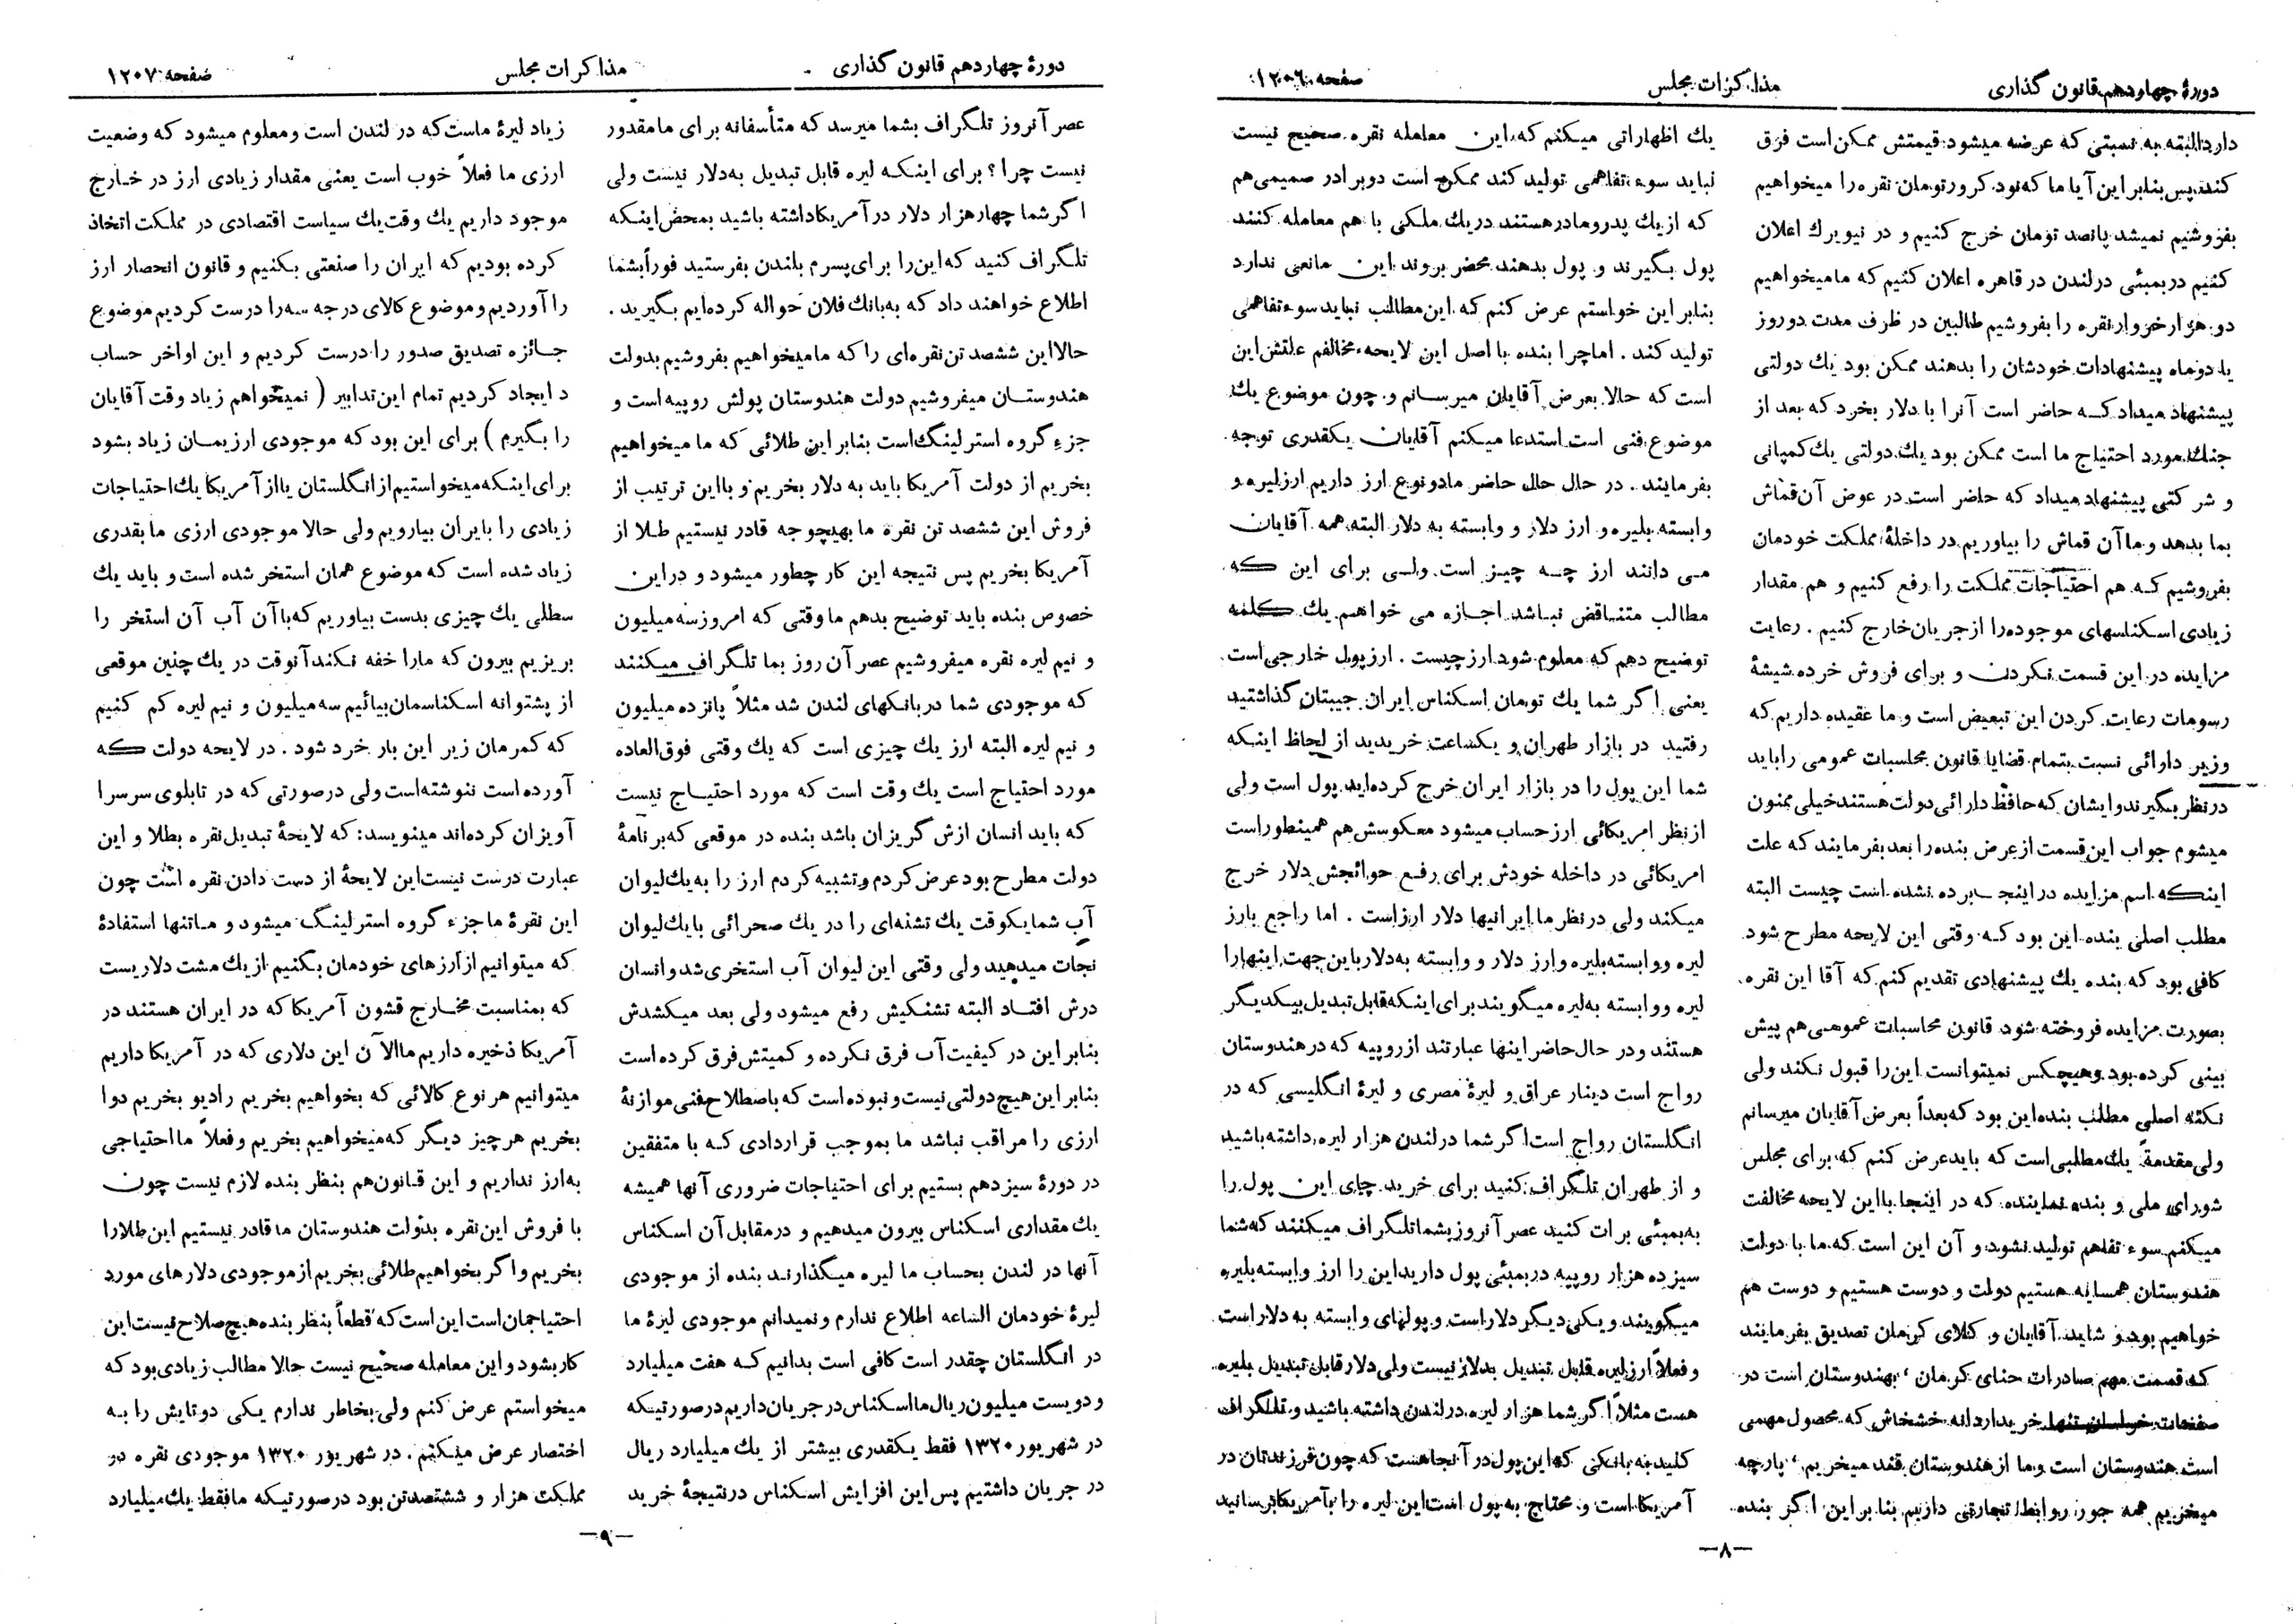 دورهٔ چهاردهم قانون گذاری
مذاکرات مجلس
صفحه ۱۲۰۶
دارد البته به نسبتی که عرضه میشود قیمتش ممکن است فرق
کند پس بنابراین آیا ما که نود کرور تومان نقره را میخواهیم
بفروشیم نمیشد پانصد تومان خرج کنیم و در نیویرك اعلان
کنیم در بمبئی در لندن در قاهره اعلان کنیم که ما میخواهیم
دو هزار خروار نقره را بفروشیم طالبین در ظرف مدت دو روز
یا دو ماه پیشنهادات خودشان را بدهند ممکن بود یك دولتی
پیشنهاد میداد که حاضر است آنرا با دلار بخرد که بعد از
جنك مورد احتیاج ما است ممکن بود یك دولتی یك کمپانی
و شرکتی پیشنهاد میداد که حاضر است در عوض آن قماش
بما بدهد و ما آن قماش را بیاوریم در داخلهٔ مملکت خودمان
بفروشیم که هم احتیاجات مملکت را رفع کنیم و هم مقدار
زیادی اسکناسهای موجوده را از جریان خارج کنیم . رعایت
مزایده در این قسمت نکردن و برای فروش خرده شیشهٔ
رسومات رعایت کردن این تبعیض است و ما عقیده داریم که
وزیر دارائی نسبت بتمام قضایا قانون محاسبات عمومی را باید
در نظر بگیرند و ایشان که حافظ دارائی دولت هستند خیلی ممنون
میشوم جواب این قسمت از عرض بنده را بعد بفرمایند که علت
اینکه اسم مزایده در اینجا برده نشده است چیست البته
مطلب اصلی بنده این بود که وقتی این لایحه مطرح شود
کافی بود که بنده یك پیشنهادی تقدیم کنم که آقا این نقره
بصورت مزایده فروخته شود قانون محاسبات عمومی هم پیش
بینی کرده بود وهیچکس نمیتوانست این را قبول نکند ولی
نکته اصلی مطلب بنده این بود که بعداً بعرض آقایان میرسانم
ولی مقدمةً یك مطلبی است که باید عرض کنم که برای مجلس
شورای ملی و بنده نماینده که در اینجا با این لایحه مخالفت
میکنم سوء تفاهم تولید نشود و آن این است که ما با دولت
هندوستان همسایه هستیم دولت و دوست هستیم و دوست هم
خواهیم بود و شاید آقایان وکلای کرمان تصدیق بفرمایند
که قسمت مهم صادرات حنای کرمان ، بهندوستان است در
صفحات خراسان تنها خریدار دانه خشخاش که محصول مهمی
است هندوستان است و ما از هندوستان قند میخریم ، پارچه
میخریم همه جور روابط تجارتی داریم بنابراین اگر بنده
یك اظهاراتی میکنم که این معامله نقره صحیح نیست
نباید سوء تفاهمی تولید کند ممکن است دو برادر صمیمی هم
که از یك پدر و مادر هستند در یك ملکی با هم معامله کنند
پول بگیرند و پول بدهند محضر بروند این مانعی ندارد
بنابراین خواستم عرض کنم که این مطالب نباید سوء تفاهمی
تولید کند . اما چرا بنده با اصل این لایحه مخالفم علتش این
است که حالا بعرض آقایان میرسانم و چون موضوع یك
موضوع فنی است استدعا میکنم آقایان یکقدری توجه
بفرمایند . در حال حال حاضر ما دو نوع ارز داریم ارز لیره و
وابسته بلیره و ارز دلار و وابسته به دلار البته همه آقایان
می دانند ارز چه چیز است ولی برای این که
مطالب متناقض نباشد اجازه می خواهم یك کلمه
توضیح دهم که معلوم شود ارز چیست . ارز پول خارجی است
یعنی اگر شما یك تومان اسکناس ایران جیبتان گذاشتید
رفتید در بازار طهران و یکساعت خریدید از لحاظ اینکه
شما این پول را در بازار ایران خرج کرده‌اید پول است ولی
از نظر امریکائی ارز حساب میشود معکوسش هم همینطور است
امریکائی در داخله خودش برای رفع حوائجش دلار خرج
میکند ولی در نظر ما ایرانیها دلار ارز است . اما راجع بارز
لیره و وابسته بلیره و ارز دلار و وابسته به دلار باین جهت اینها را
لیره و وابسته به لیره میگویند برای اینکه قابل تبدیل بیکدیگر
هستند و در حال حاضر اینها عبارتند از روپیه که در هندوستان
رواج است دینار عراق و لیرهٔ مصری و لیرهٔ انگلیسی که در
انگلستان رواج است اگر شما در لندن هزار لیره داشته باشید
و از طهران تلگراف کنید برای خرید چای این پول را
به بمبئی برات کنید عصر آنروز بشما تلگراف میکنند که شما
سیزده هزار روپیه در بمبئی پول دارید این را ارز وابسته بلیره
میگویند و یکی دیگر دلار است و پولهای وابسته به دلار است
و فعلاً ارز لیره قابل تبدیل بدلار نیست ولی دلار قابل تبدیل بلیره
هست مثلاً اگر شما هزار لیره در لندن داشته باشید و تلگراف
کنید به بانکی که این پول در آنجاهست که چون فرزندتان در
آمریکا است و محتاج به پول است این لیره را بآمریکا برسانید
—۸—
دورهٔ چهاردهم قانون گذاری
مذاکرات مجلس
صفحه ۱۲۰۷
عصر آنروز تلگراف بشما میرسد که متأسفانه برای ما مقدور
نیست چرا ؟ برای اینکه لیره قابل تبدیل به دلار نیست ولی
اگر شما چهار هزار دلار در آمریکا داشته باشید بمحض اینکه
تلگراف کنید که این را برای پسرم بلندن بفرستید فوراً بشما
اطلاع خواهند داد که به بانك فلان حواله کرده‌ایم بگیرید .
حالا این ششصد تن نقره‌ای را که ما میخواهیم بفروشیم بدولت
هندوستان میفروشیم دولت هندوستان پولش روپیه است و
جزء گروه استرلینگ است بنابراین طلائی که ما میخواهیم
بخریم از دولت آمریکا باید به دلار بخریم و با این ترتیب از
فروش این ششصد تن نقره ما بهیچوجه قادر نیستیم طلا از
آمریکا بخریم پس نتیجه این کار چطور میشود و در این
خصوص بنده باید توضیح بدهم ما وقتی که امروز سه میلیون
و نیم لیره نقره میفروشیم عصر آن روز بما تلگراف میکنند
که موجودی شما در بانکهای لندن شد مثلاً پانزده میلیون
و نیم لیره البته ارز یك چیزی است که یك وقتی فوق‌العاده
مورد احتیاج است یك وقت است که مورد احتیاج نیست
که باید انسان ازش گریزان باشد بنده در موقعی که برنامهٔ
دولت مطرح بود عرض کردم و تشبیه کردم ارز را به یك لیوان
آب شما یکوقت یك تشنه‌ای را در یك صحرائی با یك لیوان
نجات میدهید ولی وقتی این لیوان آب استخری شد و انسان
درش افتاد البته تشنگیش رفع میشود ولی بعد میکشدش
بنابراین در کیفیت آب فرق نکرده و کمیتش فرق کرده است
بنابراین هیچ دولتی نیست و نبوده است که باصطلاح فنی موازنهٔ
ارزی را مراقب نباشد ما بموجب قراردادی که با متفقین
در دورهٔ سیزدهم بستیم برای احتیاجات ضروری آنها همیشه
یك مقداری اسکناس بیرون میدهیم و در مقابل آن اسکناس
آنها در لندن بحساب ما لیره میگذارند بنده از موجودی
لیرهٔ خودمان الساعه اطلاع ندارم و نمیدانم موجودی لیرهٔ ما
در انگلستان چقدر است کافی است بدانیم که هفت میلیارد
و دویست میلیون ریال ما اسکناس در جریان داریم در صورتیکه
در شهریور ۱۳۲۰ فقط یکقدری بیشتر از یك میلیارد ریال
در جریان داشتیم پس این افزایش اسکناس در نتیجهٔ خرید
زیاد لیرهٔ ماست که در لندن است و معلوم میشود که وضعیت
ارزی ما فعلاً خوب است یعنی مقدار زیادی ارز در خارج
موجود داریم یك وقت یك سیاست اقتصادی در مملکت اتخاذ
کرده بودیم که ایران را صنعتی بکنیم و قانون انحصار ارز
را آوردیم و موضوع کالای درجه سه را درست کردیم موضوع
جائزه تصدیق صدور را درست کردیم و این اواخر حساب
د ایجاد کردیم تمام این تدابیر ( نمیخواهم زیاد وقت آقایان
را بگیرم ) برای این بود که موجودی ارزیمان زیاد بشود
برای اینکه میخواستیم از انگلستان یا از آمریکا یك احتیاجات
زیادی را بایران بیاوریم ولی حالا موجودی ارزی ما بقدری
زیاد شده است که موضوع همان استخر شده است و باید یك
سطلی یك چیزی بدست بیاوریم که با آن آب آن استخر را
بریزیم بیرون که ما را خفه نکند آنوقت در یك چنین موقعی
از پشتوانه اسکناسمان بیائیم سه میلیون و نیم لیره کم کنیم
که کمرمان زیر این بار خرد شود . در لایحه دولت که
آورده است ننوشته است ولی در صورتی که در تابلوی سرسرا
آویزان کرده‌اند مینویسد: که لایحهٔ تبدیل نقره بطلا و این
عبارت درست نیست این لایحهٔ از دست دادن نقره است چون
این نقرهٔ ما جزء گروه استرلینگ میشود و ما تنها استفادهٔ
که میتوانیم از ارزهای خودمان بکنیم از یك مشت دلاریست
که بمناسبت مخارج قشون آمریکا که در ایران هستند در
آمریکا ذخیره داریم ما الآن این دلاری که در آمریکا داریم
میتوانیم هر نوع کالائی که بخواهیم بخریم رادیو بخریم دوا
بخریم هر چیز دیگر که میخواهیم بخریم و فعلاً ما احتیاجی
به ارز نداریم و این قانون هم بنظر بنده لازم نیست چون
با فروش این نقره بدولت هندوستان ما قادر نیستیم این طلا را
بخریم و اگر بخواهیم طلائی بخریم از موجودی دلارهای مورد
احتیاجمان است این است که قطعاً بنظر بنده هیچ صلاح نیست این
کار بشود و این معامله صحیح نیست حالا مطالب زیادی بود که
میخواستم عرض کنم ولی بخاطر ندارم یکی دو تایش را به
اختصار عرض میکنم . در شهریور ۱۳۲۰ موجودی نقره در
مملکت هزار و ششصد تن بود در صورتیکه ما فقط یك میلیارد
—۹—